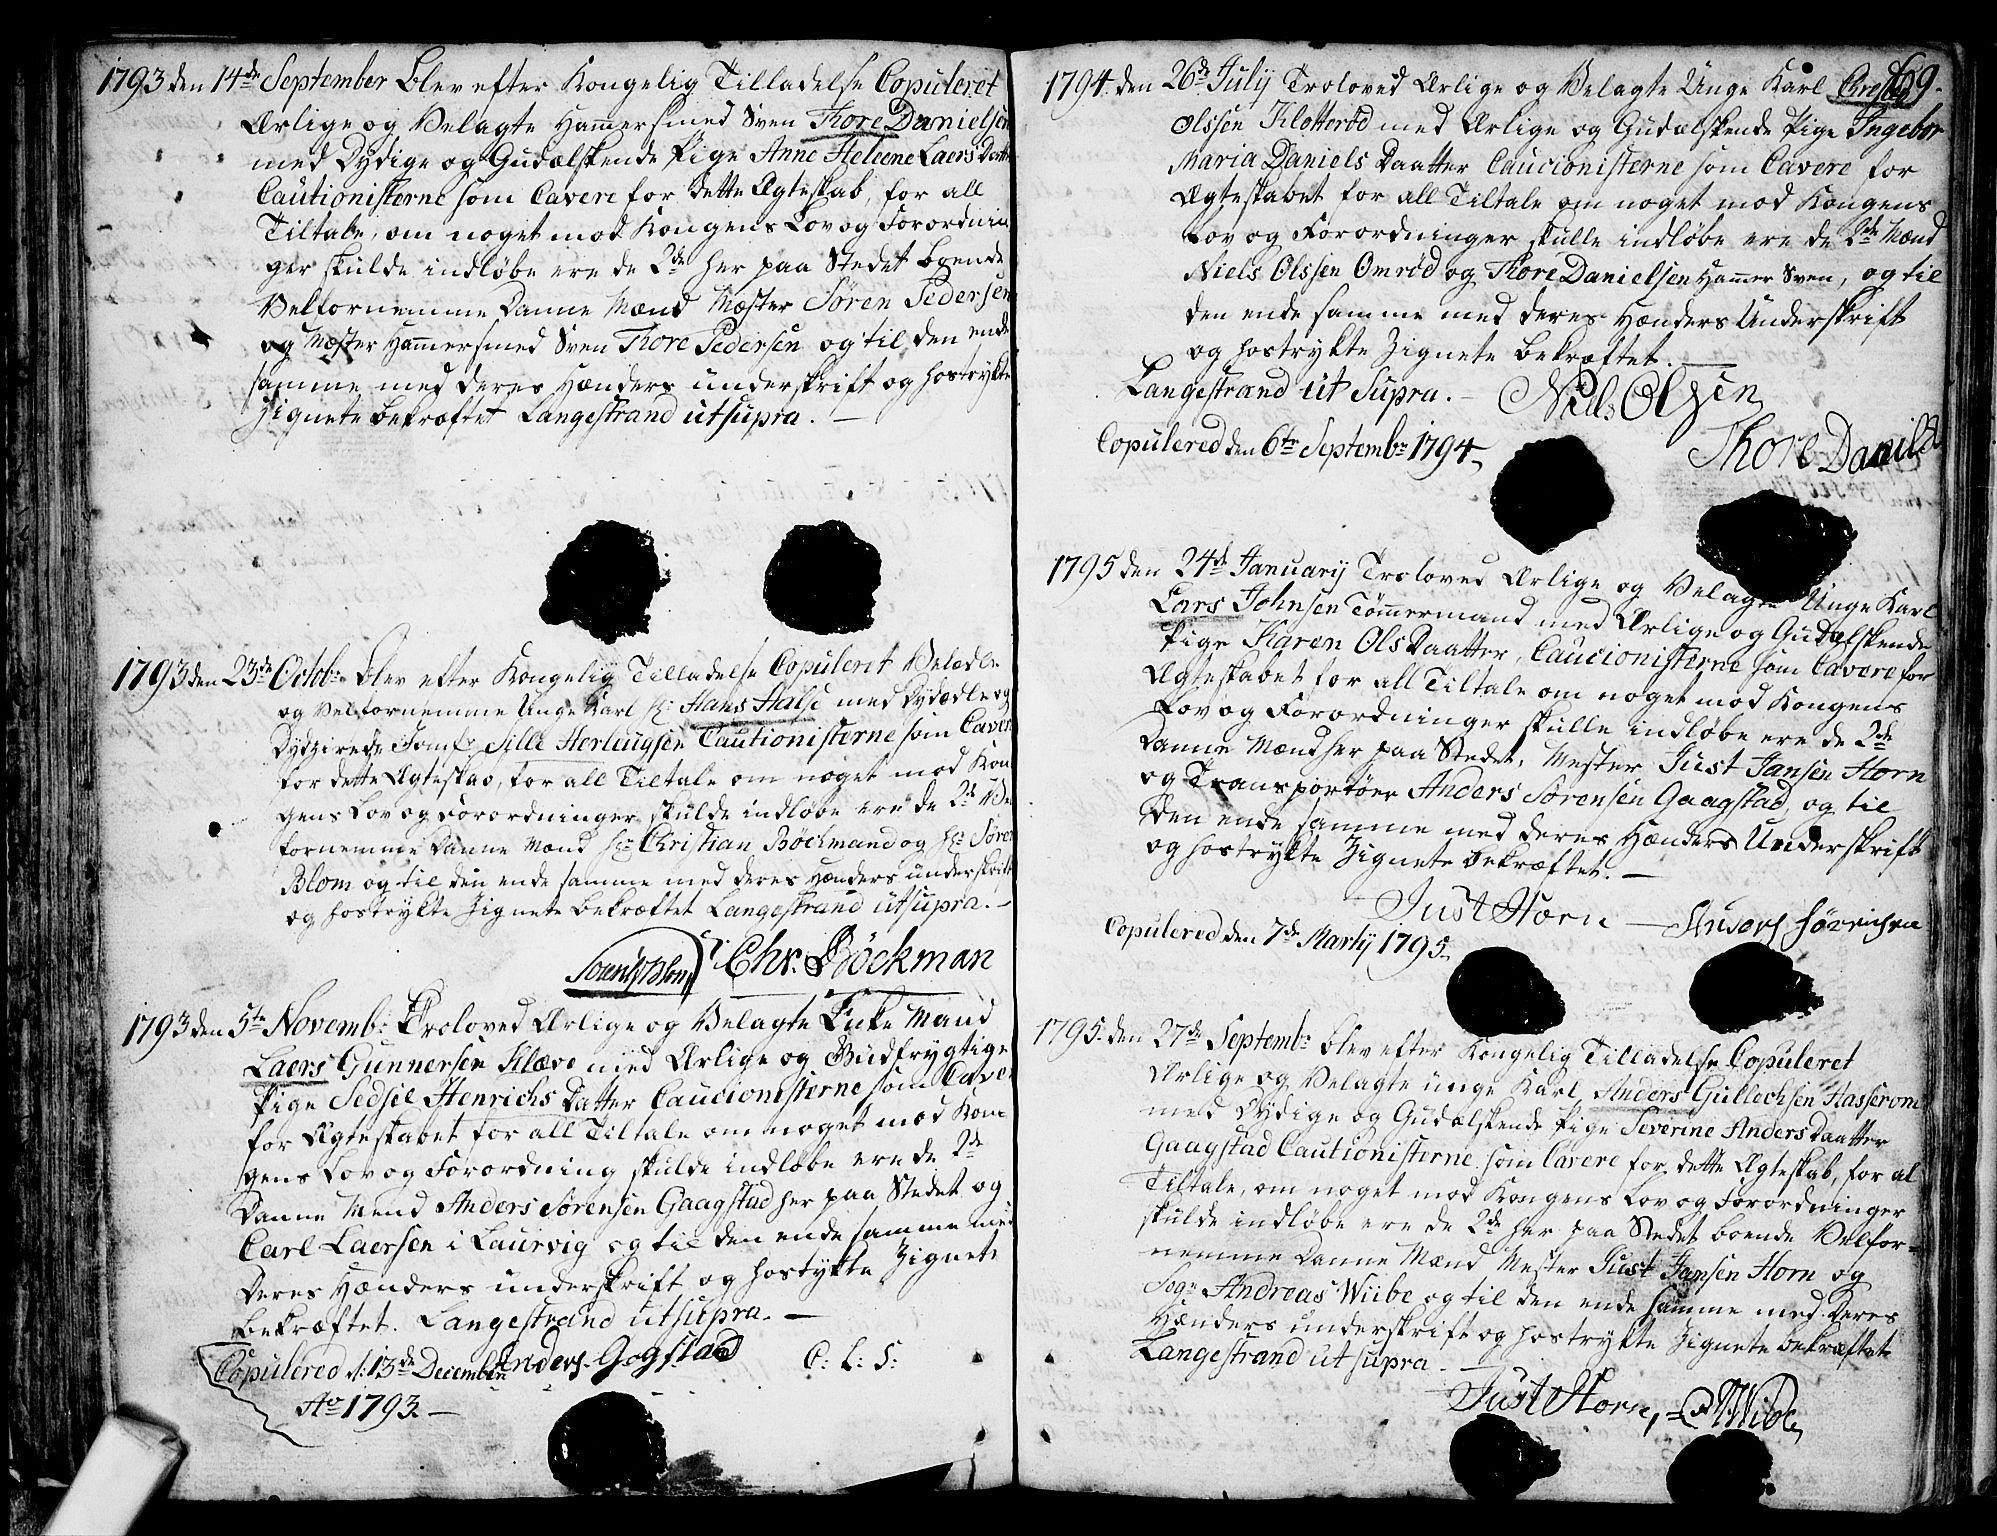 1793 den 14de September Blev efter Kongelig Tilladelse Copuleret
Ærlige og Velagte Hammersmed Sven Thore Danielsen
med Dydige og Gudælskende Pige Anne Heleene Laers Datter
Cautionisterne som Cavere for dette Ægteskab, for all
Tiltale, om noget mod Kongens Lov og Forordnin
ger skulde indløbe ere de 2de her paa Stedet boende
Velfornemme Danne Mænd Mæster Søren Pedersen
og Mæster Hammersmed Sven Thore Pedersen og til den ende
samme med deres Hænders underskrift og hostrykte
Zignete bekræftet Langestrand ut supra. —
1793 den 23de Octobr. Blev efter Kongelig Tilladelse Copuleret Velædle
og Velfornemme Unge Karl Hr: Hans Halse med Dydædle og
Dydzirede Jomfr Sille Herleugsen Cautionisterne som Cavere
for dette Ægteskab, for all Tiltale om noget mod Kon
gens Lov og Forordninger skulde indløbe ere de 2de Vel
fornemme Danne Mænd Hr: Christian Böckmand og Hr: Søren
Blom og til den ende samme med deres Hænders underskrift
og hostrykte Zignete bekræftet Langestrand ut supra. —
Blom Chr. Böckman
1793 den 5te Novemb: Troloved Ærlige og Velagte Enke Mand
Laers Gunnersen Klæve med Ærlige og Gudfrygtige
Pige Sedsel Henrichs Datter Caucionisterne som Cavere
for Ægteskabet for all Tiltale om noget mod Kon
gens Lov og Forordning skulde indløbe ere de 2de
Danne Mend Anders Sørensen Gaagstad her paa Stedet og
Carl Laersen i Laurvig og til den ende samme med
Deres Hænders underskrift og hostykte Zignete
bekræftet. Langestrand ut supra. —
Copulered d: 13de December Anders. Gogstad C: L: S:
Ao 1793. —
69.
1794. den 26de July Troloved Ærlige og Velagte Unge Karl
Olssen Klotterød med Ærlige og Gudælskende Pige Ingebor
Maria Daniels Daatter Caucionisterne som Cavere for
Ægteskabet for all Tiltale om noget mod Kongens
Lov og Forordninger skulle indløbe ere de 2de Mænd
Niels Olssen Omrød og Thore Danielsen Hammer Sven, og til
den ende samme med deres Hænders Underskrift
og hostrykte Zignete bekræftet. —
Langestrand ut Supra. — Niels Olsen
Copulered den 6te Septembr 1794. Thore Daniels
1795 den 24de January Troloved Ærlige og Velagte Unge Karl
Lars Johnsen Tømmermand med Ærlige og Gudælskende
Pige Karen Ols Daatter, Caucionisterne som Cavere for
Ægteskabet for all Tiltale om noget mod Kongens
Lov og Forordninger skulle indløbe ere de 2de
Danne Mænd her paa Stedet, Mester Just Jansen Horn
og Transportöer Anders Sørensen Gaagstad, og til
den ende samme med deres Hænders Underskrift
og hostrykte Zignete bekræftet. —
Just Horn — Anders Sörensen
Copulered den 7de Martij 1795.
1795. den 27de Septembr blev efter Kongelig Tilladelse Copuleret
Ærlige og Velagte unge Karl, Anders Gullechsen Hasserom
med Dydige og Gudælskende Pige Severine Anders Daatter
Gaagstad Cautionisterne som Cavere for dette Ægteskab, for al
Tiltale, om noget mod Kongens Lov og Forordninger
skulde indløbe ere de 2de her paa Stedet boende Velfor=
nemme Danne Mænd Mester Just Jansen Horn og
Andreas Wiibe og til den ende samme med deres
Hænders underskrift og hostrykte Zignete bekræftet
Langestrand ut supra. —
Just Horn, A Wibe